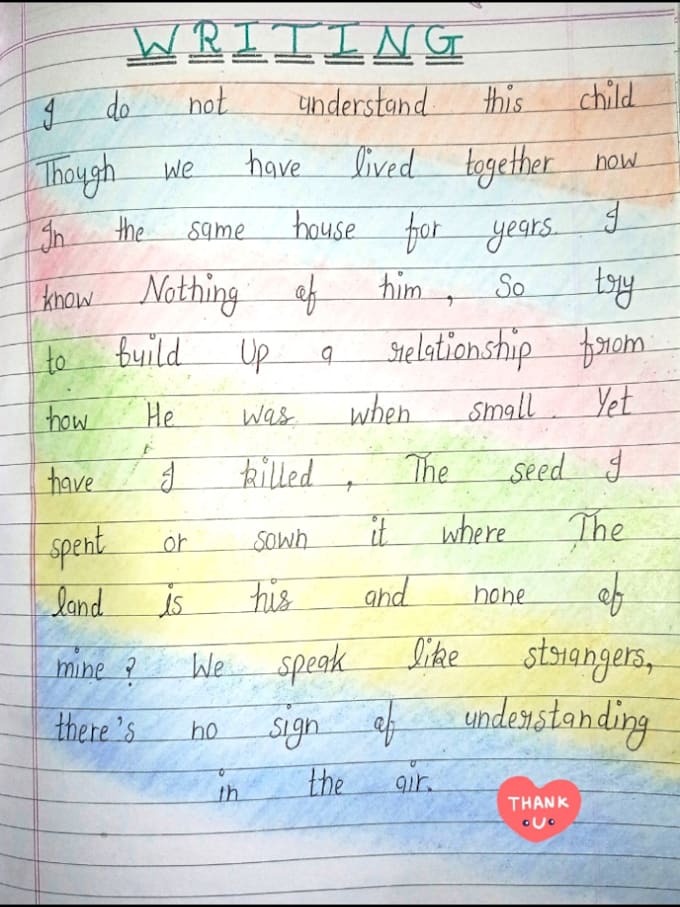 WRITING
I do not understand this child
Though we have lived together now
In the same house for years. I
know Nothing of him, So try
to build Up a relationship from
how He was when small. Yet
have I killed, The seed I
spent or sown it where The
land is his and none of
mine? We speak like strangers,
there's no sign of understanding
in the air.
THANK
U